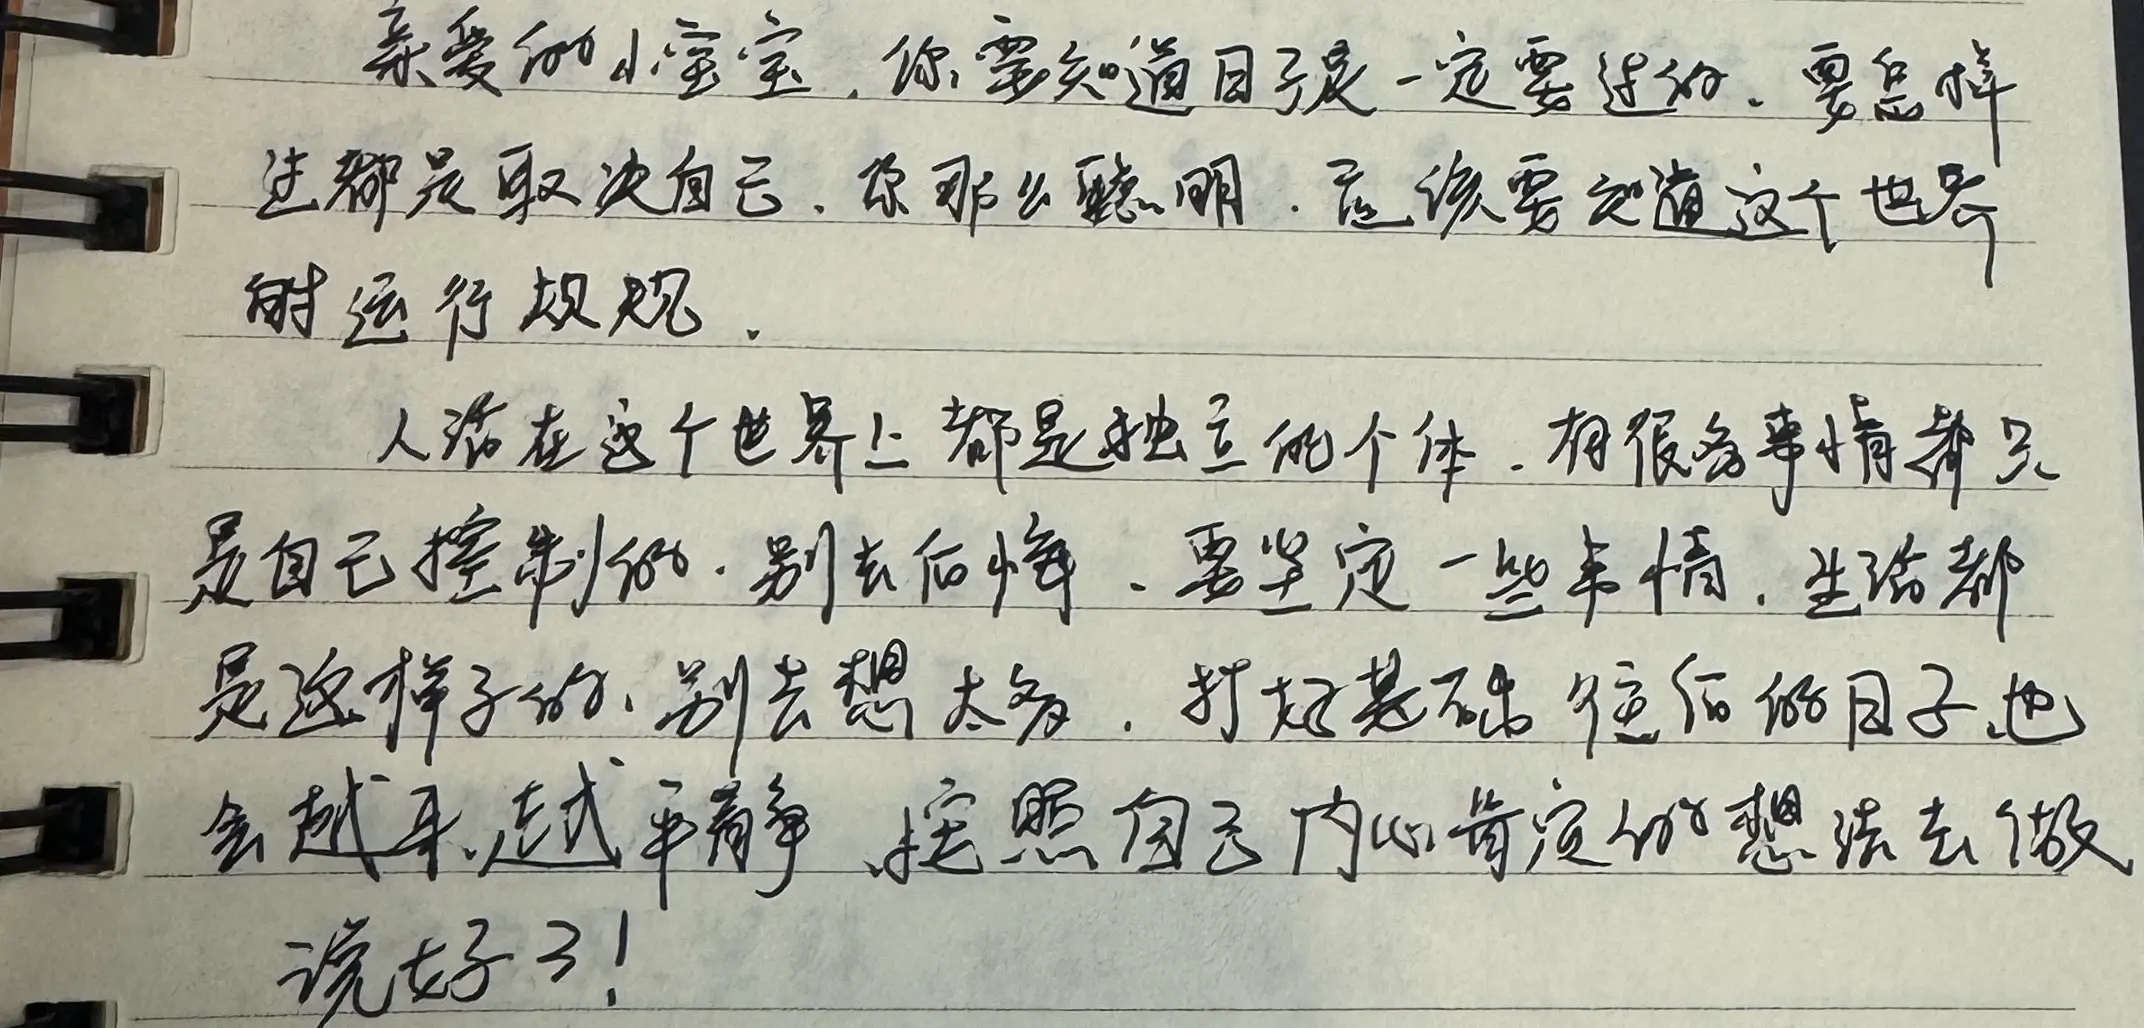 亲爱的小宝宝，你要知道日子是一定要过的、要怎样
过都是取决自己、你那么聪明、应该要知道这个世界
的运行规规.
人活在这个世界上都是独立的个体、有很多事情都只
是自己控制的、别去后悔、要坚定一些事情、生活都
是这样子的、别去想太多、打好基础往后的日子也
会越来越平静、按照自己内心肯定的想法去做
说好了！